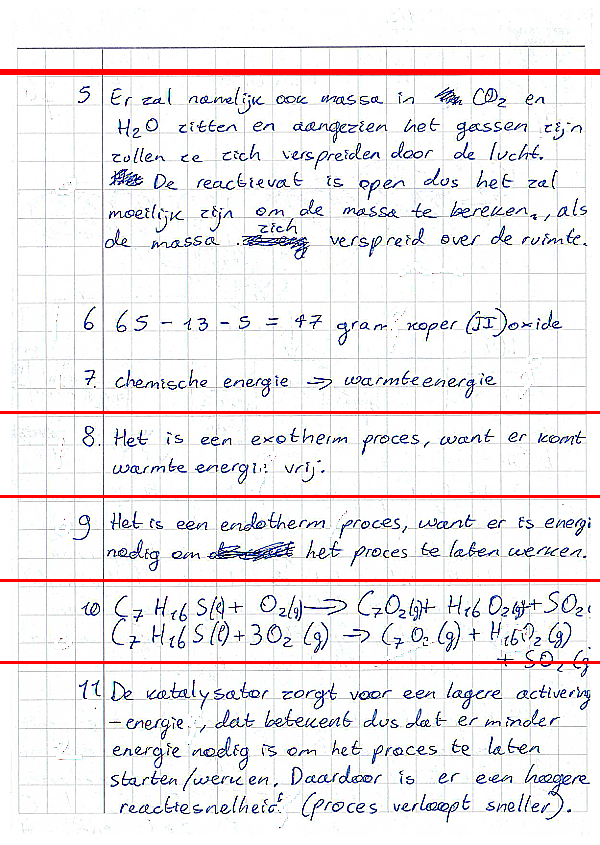 5 Er zal namelijk ook massa in CO2 en
H2O zitten en aangezien het gassen zijn
zullen ze zich verspreiden door de lucht.
De reactievat is open dus het zal
moeilijk zijn om de massa te bereken., als
de massa zich verspreid over de ruimte.
6 65 - 13 - 5 = 47 gram koper (II) oxide
7. chemische energie → warmteenergie
8. Het is een exotherm proces, want er komt
warmte energie vrij.
9 Het is een endotherm proces, want er is energi
nodig om het proces te laten werken.
10 C7 H16 S(l) + O2(g) → C7O2(g) + H16 O2(g) + SO2(
C7 H16 S(l) + 3O2 (g) → C7 O2 (g) + H16O2 (g)
+ SO2 (g
11 De katalysator zorgt voor een lagere activering
-energie, dat betekent dus dat er minder
energie nodig is om het proces te laten
starten/werken. Daardoor is er een hogere
reactiesnelheid (proces verloopt sneller).